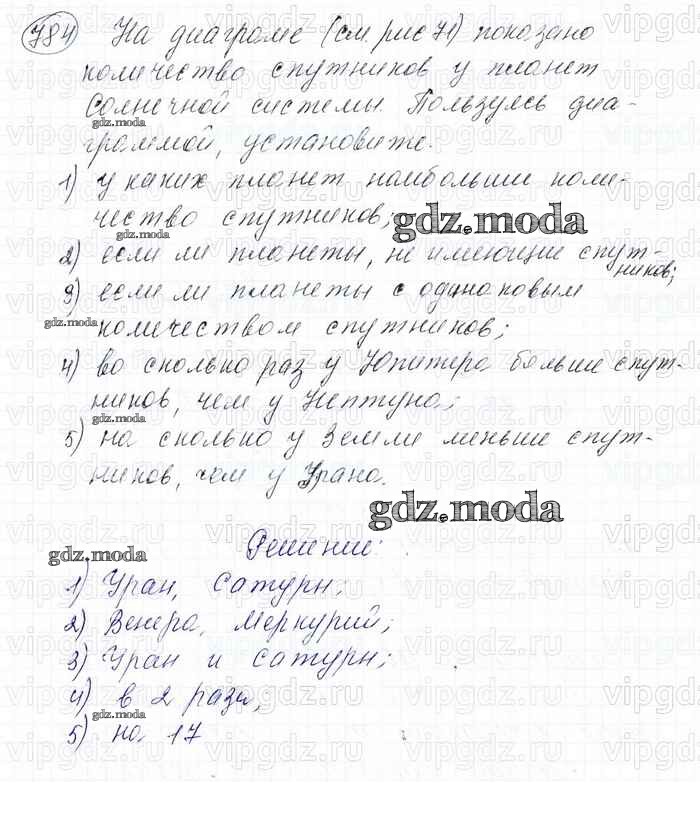 784 На диаграме (см. рис 71) показано
количество спутников у планет
Солнечной системы. Пользуясь диа-
граммой, установите:
1) у каких планет наибольшии коли-
чество спутников;
2) если ли планеты, не имеющие спут-
ников;
3) если ли планеты с одинаковым
количеством спутников;
4) во сколько раз у Юпитера больше спут-
ников, чем у Нептуна;
5) на сколько у Земли меньше спут-
ников, чем у Урана.
Решение:
1) Уран, Сатурн;
2) Венера, Меркурий;
3) Уран и Сатурн;
4) в 2 раза;
5) на 17
gdz.moda
vipgdz.ru